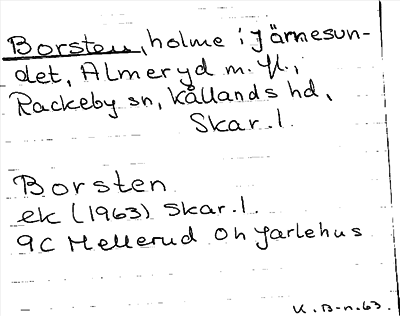 Borsten, holme i Järnesun-
det, Almeryd m. fl.,
Rackeby sn, Kållands hd,
Skar. l.
Borsten
ek (1963) Skar. l.
9C Mellerud Oh Jarlehus
K. B-n. 63.